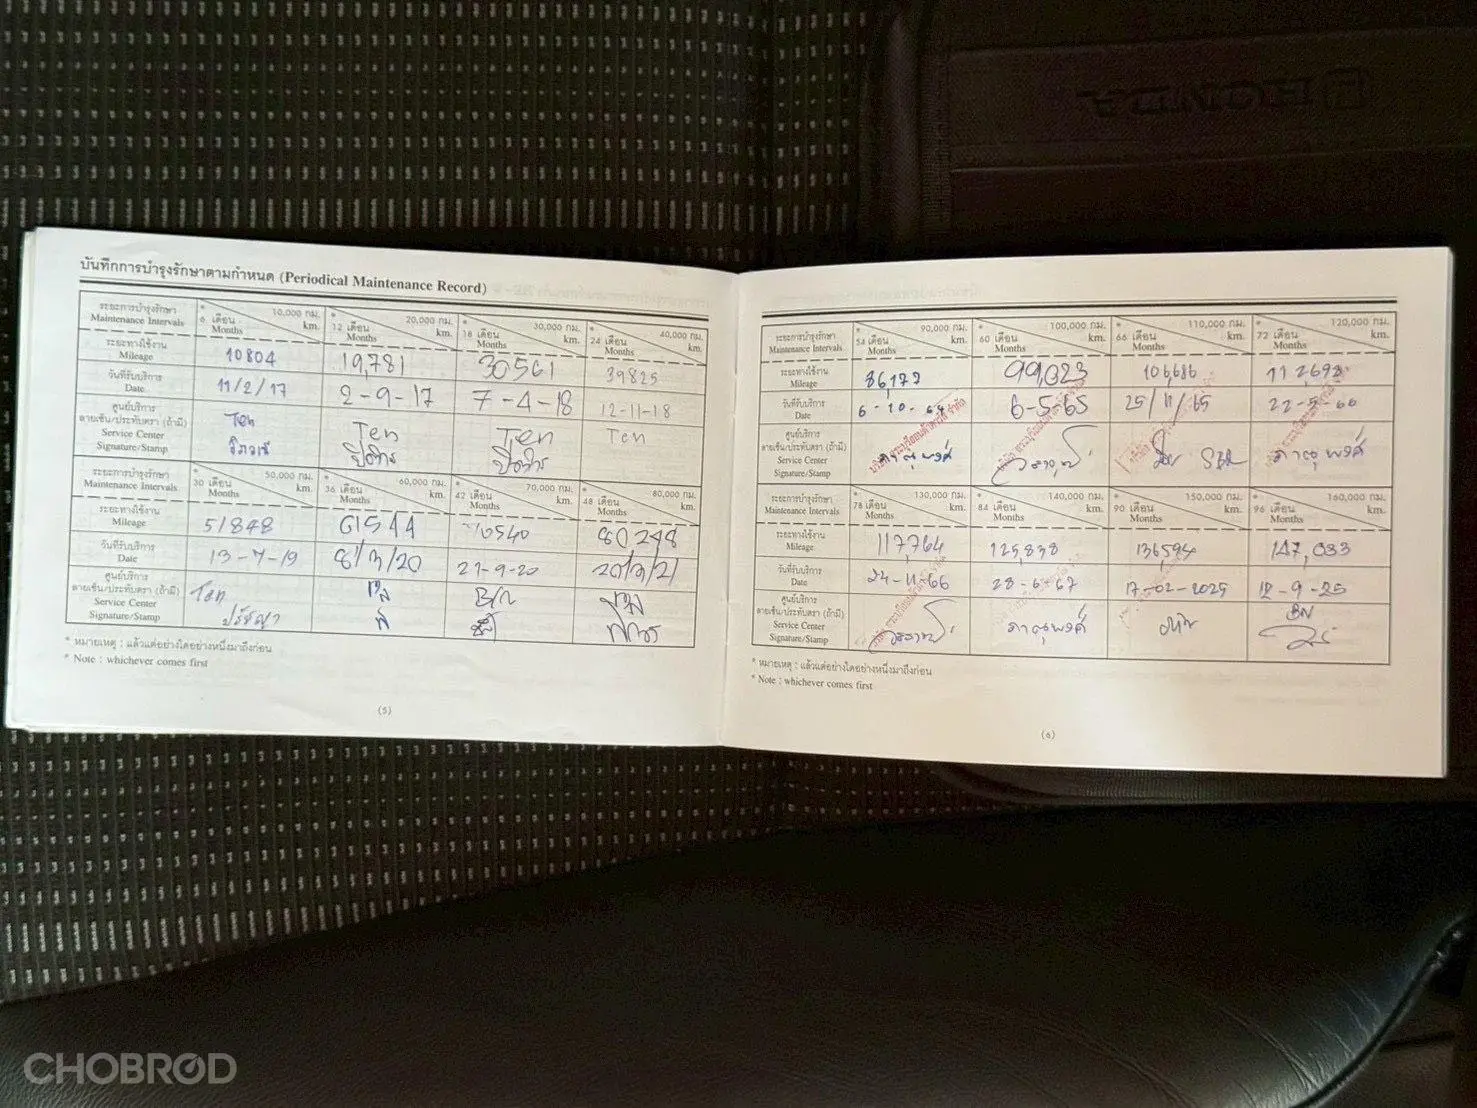 HONDA
บันทึกการบำรุงรักษาตามกำหนด (Periodical Maintenance Record)
ระยะการบำรุงรักษา
Maintenance Intervals
* 6 เดือน Months 10,000 กม. km.
* 12 เดือน Months 20,000 กม. km.
* 18 เดือน Months 30,000 กม. km.
* 24 เดือน Months 40,000 กม. km.
ระยะทางใช้งาน
Mileage
10804 19,781 30561 39825
วันที่รับบริการ
Date
11/2/17 2-9-17 7-4-18 12-11-18
ศูนย์บริการ
ลายเซ็น/ประทับตรา (ถ้ามี)
Service Center
Signature/Stamp
Ten Ten Ten Ten
ระยะการบำรุงรักษา
Maintenance Intervals
* 30 เดือน Months 50,000 กม. km.
* 36 เดือน Months 60,000 กม. km.
* 42 เดือน Months 70,000 กม. km.
* 48 เดือน Months 80,000 กม. km.
ระยะทางใช้งาน
Mileage
51848 61544 70540 80248
วันที่รับบริการ
Date
13-7-19 8/3/20 27-9-20 20/3/21
ศูนย์บริการ
ลายเซ็น/ประทับตรา (ถ้ามี)
Service Center
Signature/Stamp
Ten
ปรัชญา
* หมายเหตุ : แล้วแต่อย่างใดอย่างหนึ่งมาถึงก่อน
* Note : whichever comes first
(5)
ระยะการบำรุงรักษา
Maintenance Intervals
* 54 เดือน Months 90,000 กม. km.
* 60 เดือน Months 100,000 กม. km.
* 66 เดือน Months 110,000 กม. km.
* 72 เดือน Months 120,000 กม. km.
ระยะทางใช้งาน
Mileage
86177 99,023 106,686 112,692
วันที่รับบริการ
Date
6-10-64 6-5-65 25/11/65 22-5-66
ศูนย์บริการ
ลายเซ็น/ประทับตรา (ถ้ามี)
Service Center
Signature/Stamp
ภาณุพงศ์ ภาณุพงศ์
ระยะการบำรุงรักษา
Maintenance Intervals
* 78 เดือน Months 130,000 กม. km.
* 84 เดือน Months 140,000 กม. km.
* 90 เดือน Months 150,000 กม. km.
* 96 เดือน Months 160,000 กม. km.
ระยะทางใช้งาน
Mileage
117,764 125,838 136,594 147,033
วันที่รับบริการ
Date
24-11-66 28-6-67 17-02-2025 12-9-25
ศูนย์บริการ
ลายเซ็น/ประทับตรา (ถ้ามี)
Service Center
Signature/Stamp
ภาณุพงศ์ BN
* หมายเหตุ : แล้วแต่อย่างใดอย่างหนึ่งมาถึงก่อน
* Note : whichever comes first
(6)
CHOBROD